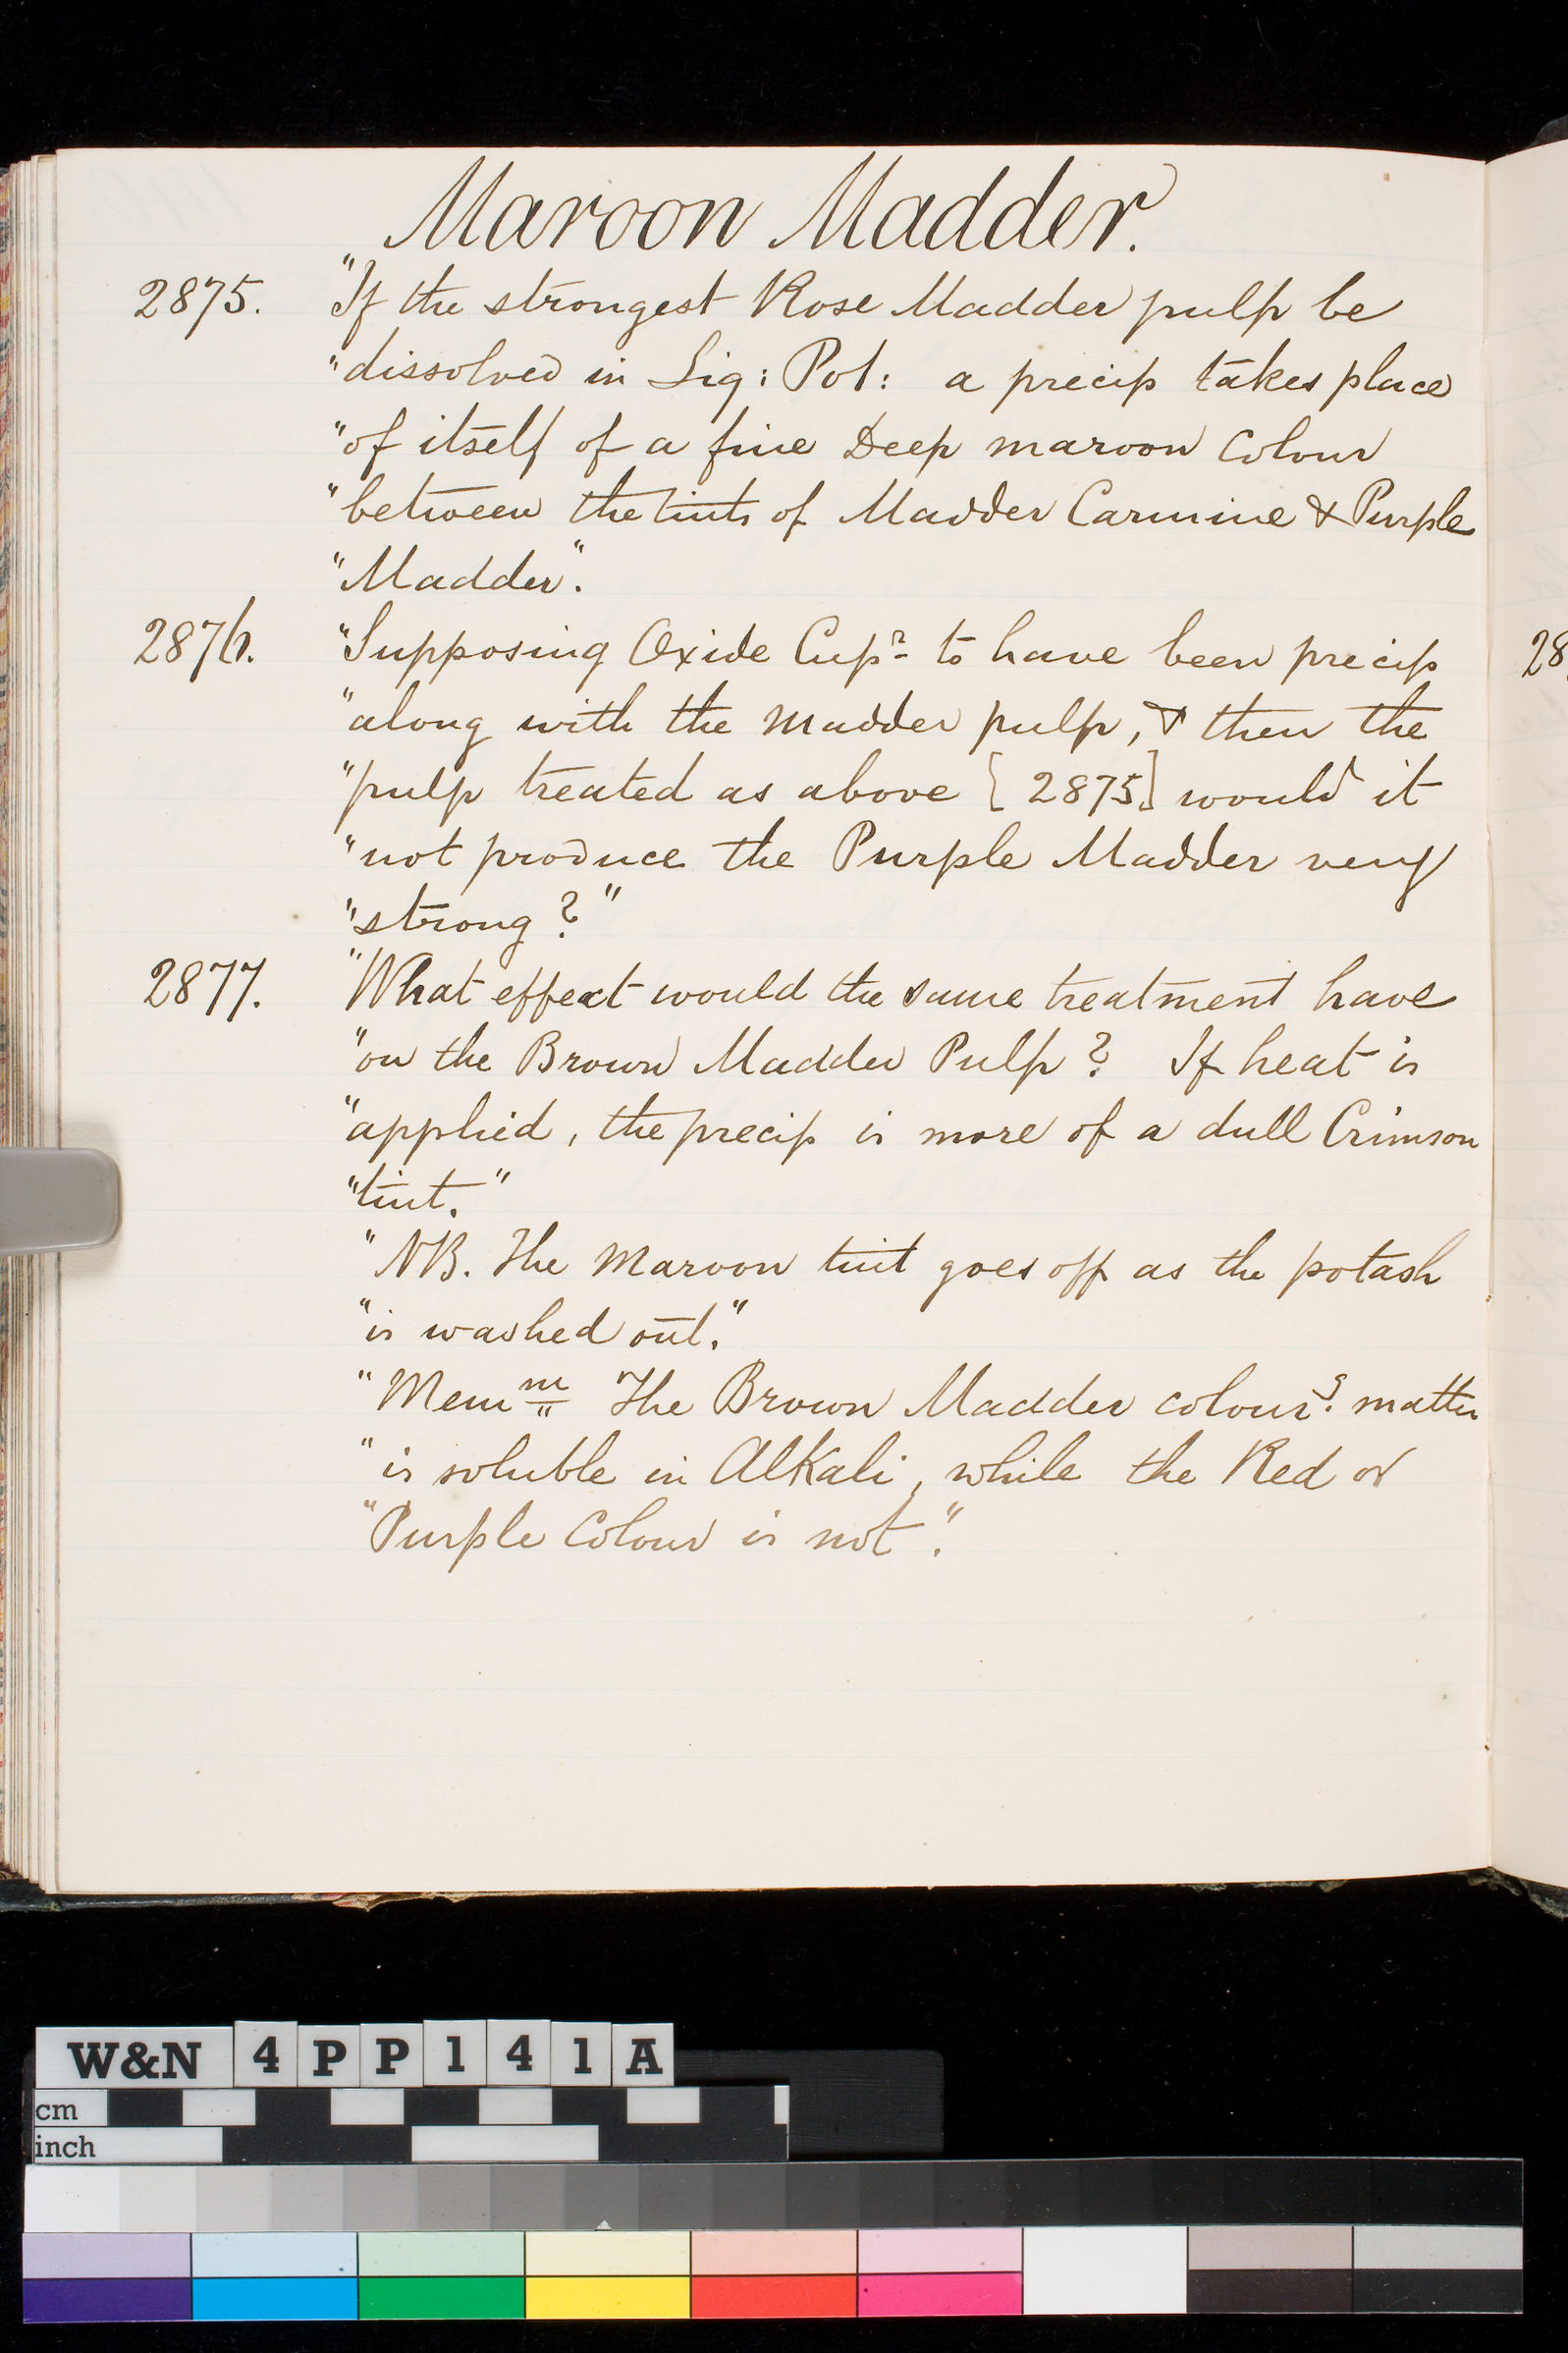 Maroon Madder.
2875. "If the strongest Rose Madder pulp be
"dissolved in Liq: Pot: a precip takes place
"of itself of a fine Deep maroon Colour
"between the tints of Madder Carmine & Purple
"Madder".
2876. "Supposing Oxide Cupr to have been precip
"along with the Madder pulp, & then the
"pulp treated as above [2875] would it
"not produce the Purple Madder very
"strong?"
2877. "What effect would the same treatment have
"on the Brown Madder Pulp? If heat is
"applied, the precip is more of a dull Crimson
"tint."
"NB. The Maroon tint goes off as the potash
"is washed out."
"Mem^m The Brown Madder colour^g. matter
"is soluble in Alkali, while the Red or
"Purple Colour is not".
28
W&N 4PP141A
cm
inch